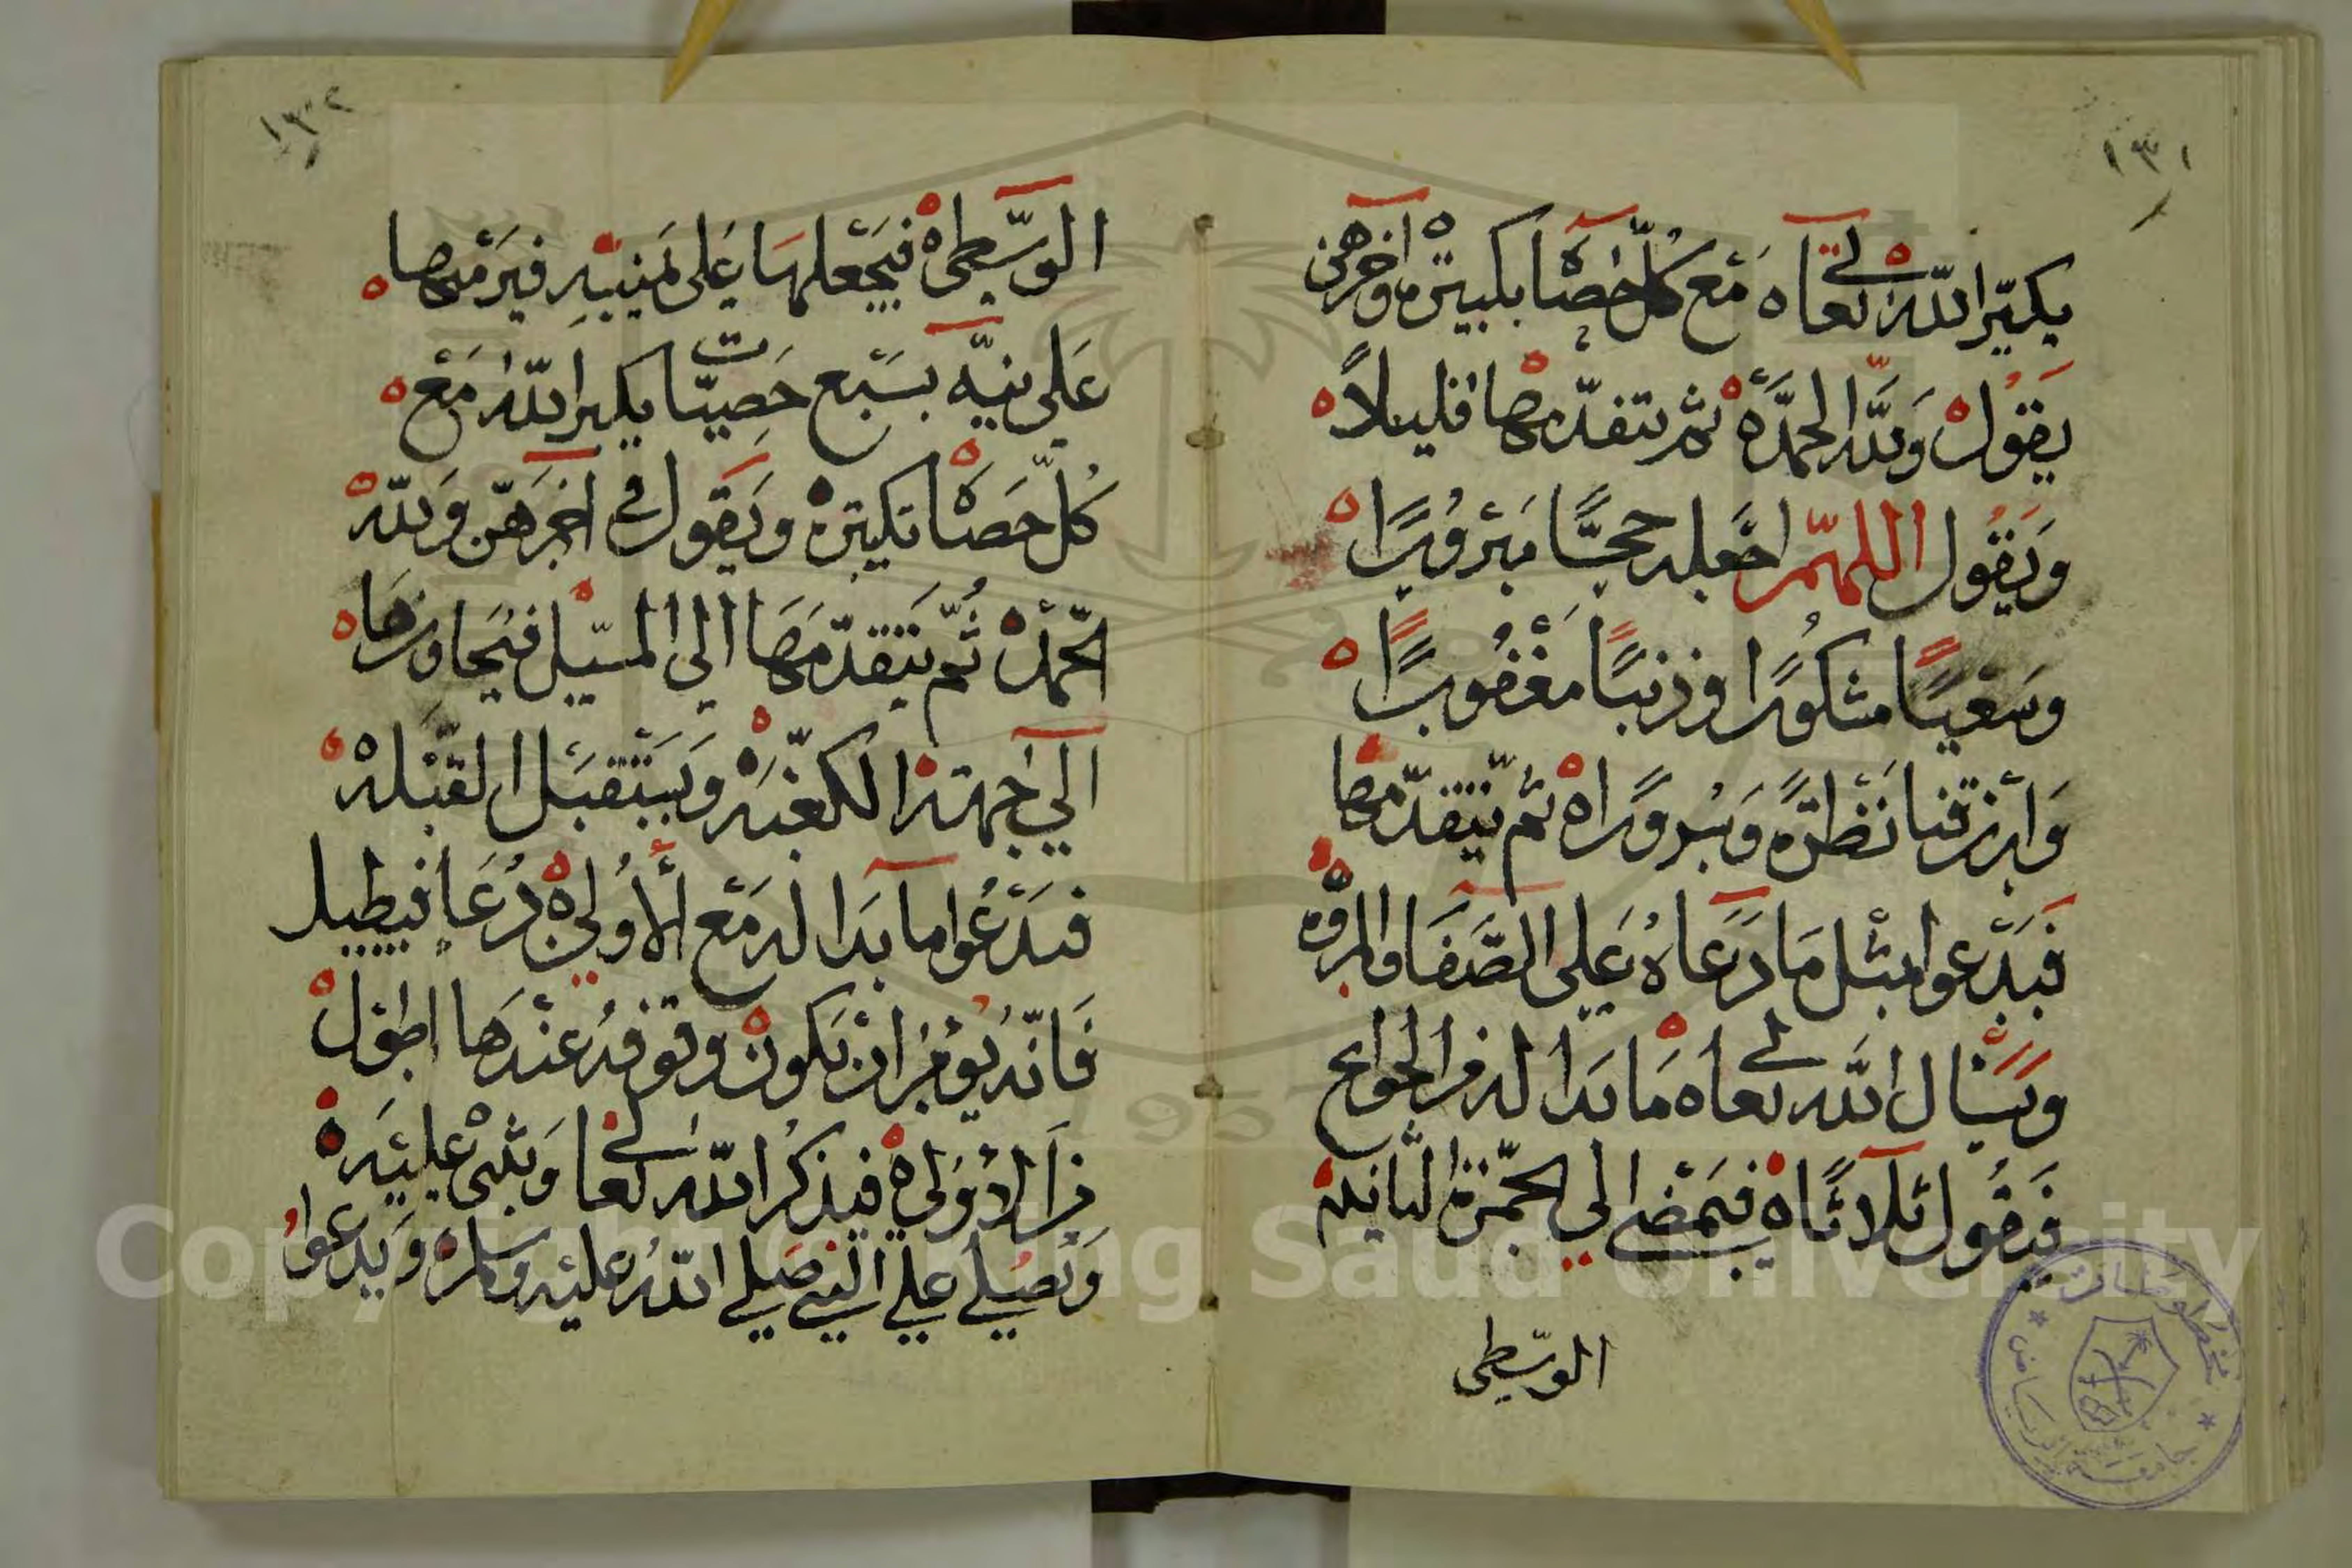 ١٣١
يكبّر الله تعالى مع كلّ حصاة تكبيرة وآخرهن
يقول ولله الحمد ثم يتقدّمها قليلاً
ويقول اللهمّ اجعله حجًّا مبرورًا
وسعيًا مشكورًا وذنبًا مغفورًا
وارزقنا نظرةً وسرورًا ثم يتقدّمها
فيدعوا بمثل ما دعاه على الصّفا والمروة
ويسأل الله تعالى ما بدا له من الحوايج
فيقول ثلاثًا فيمضي الي الجمرة الثانية
الوسطى
١٣٢
الوسطى فيجعلها على يمينه فيرميها
على نيّه بسبع حصيّات يكبر الله مع
كلّ حصاة تكبيرة ويقول في آخرهنّ ولله
الحمد ثم يتقدّمها الي المسيل فيجاوزها
الي جهة الكعبه ويستقبل القبله
فيدعوا ما بدا له مع الأولي دعا فيطيل
فانّه يؤمر ان يكون وقوفه عندها اطول
من الاولي فيذكر الله تعالى ويثني عليه
ويصلي علي النبي صلي الله عليه وسلم ويدعوا
Copyright © King Saud University
1957
مخطوطات
جامعة الرياض